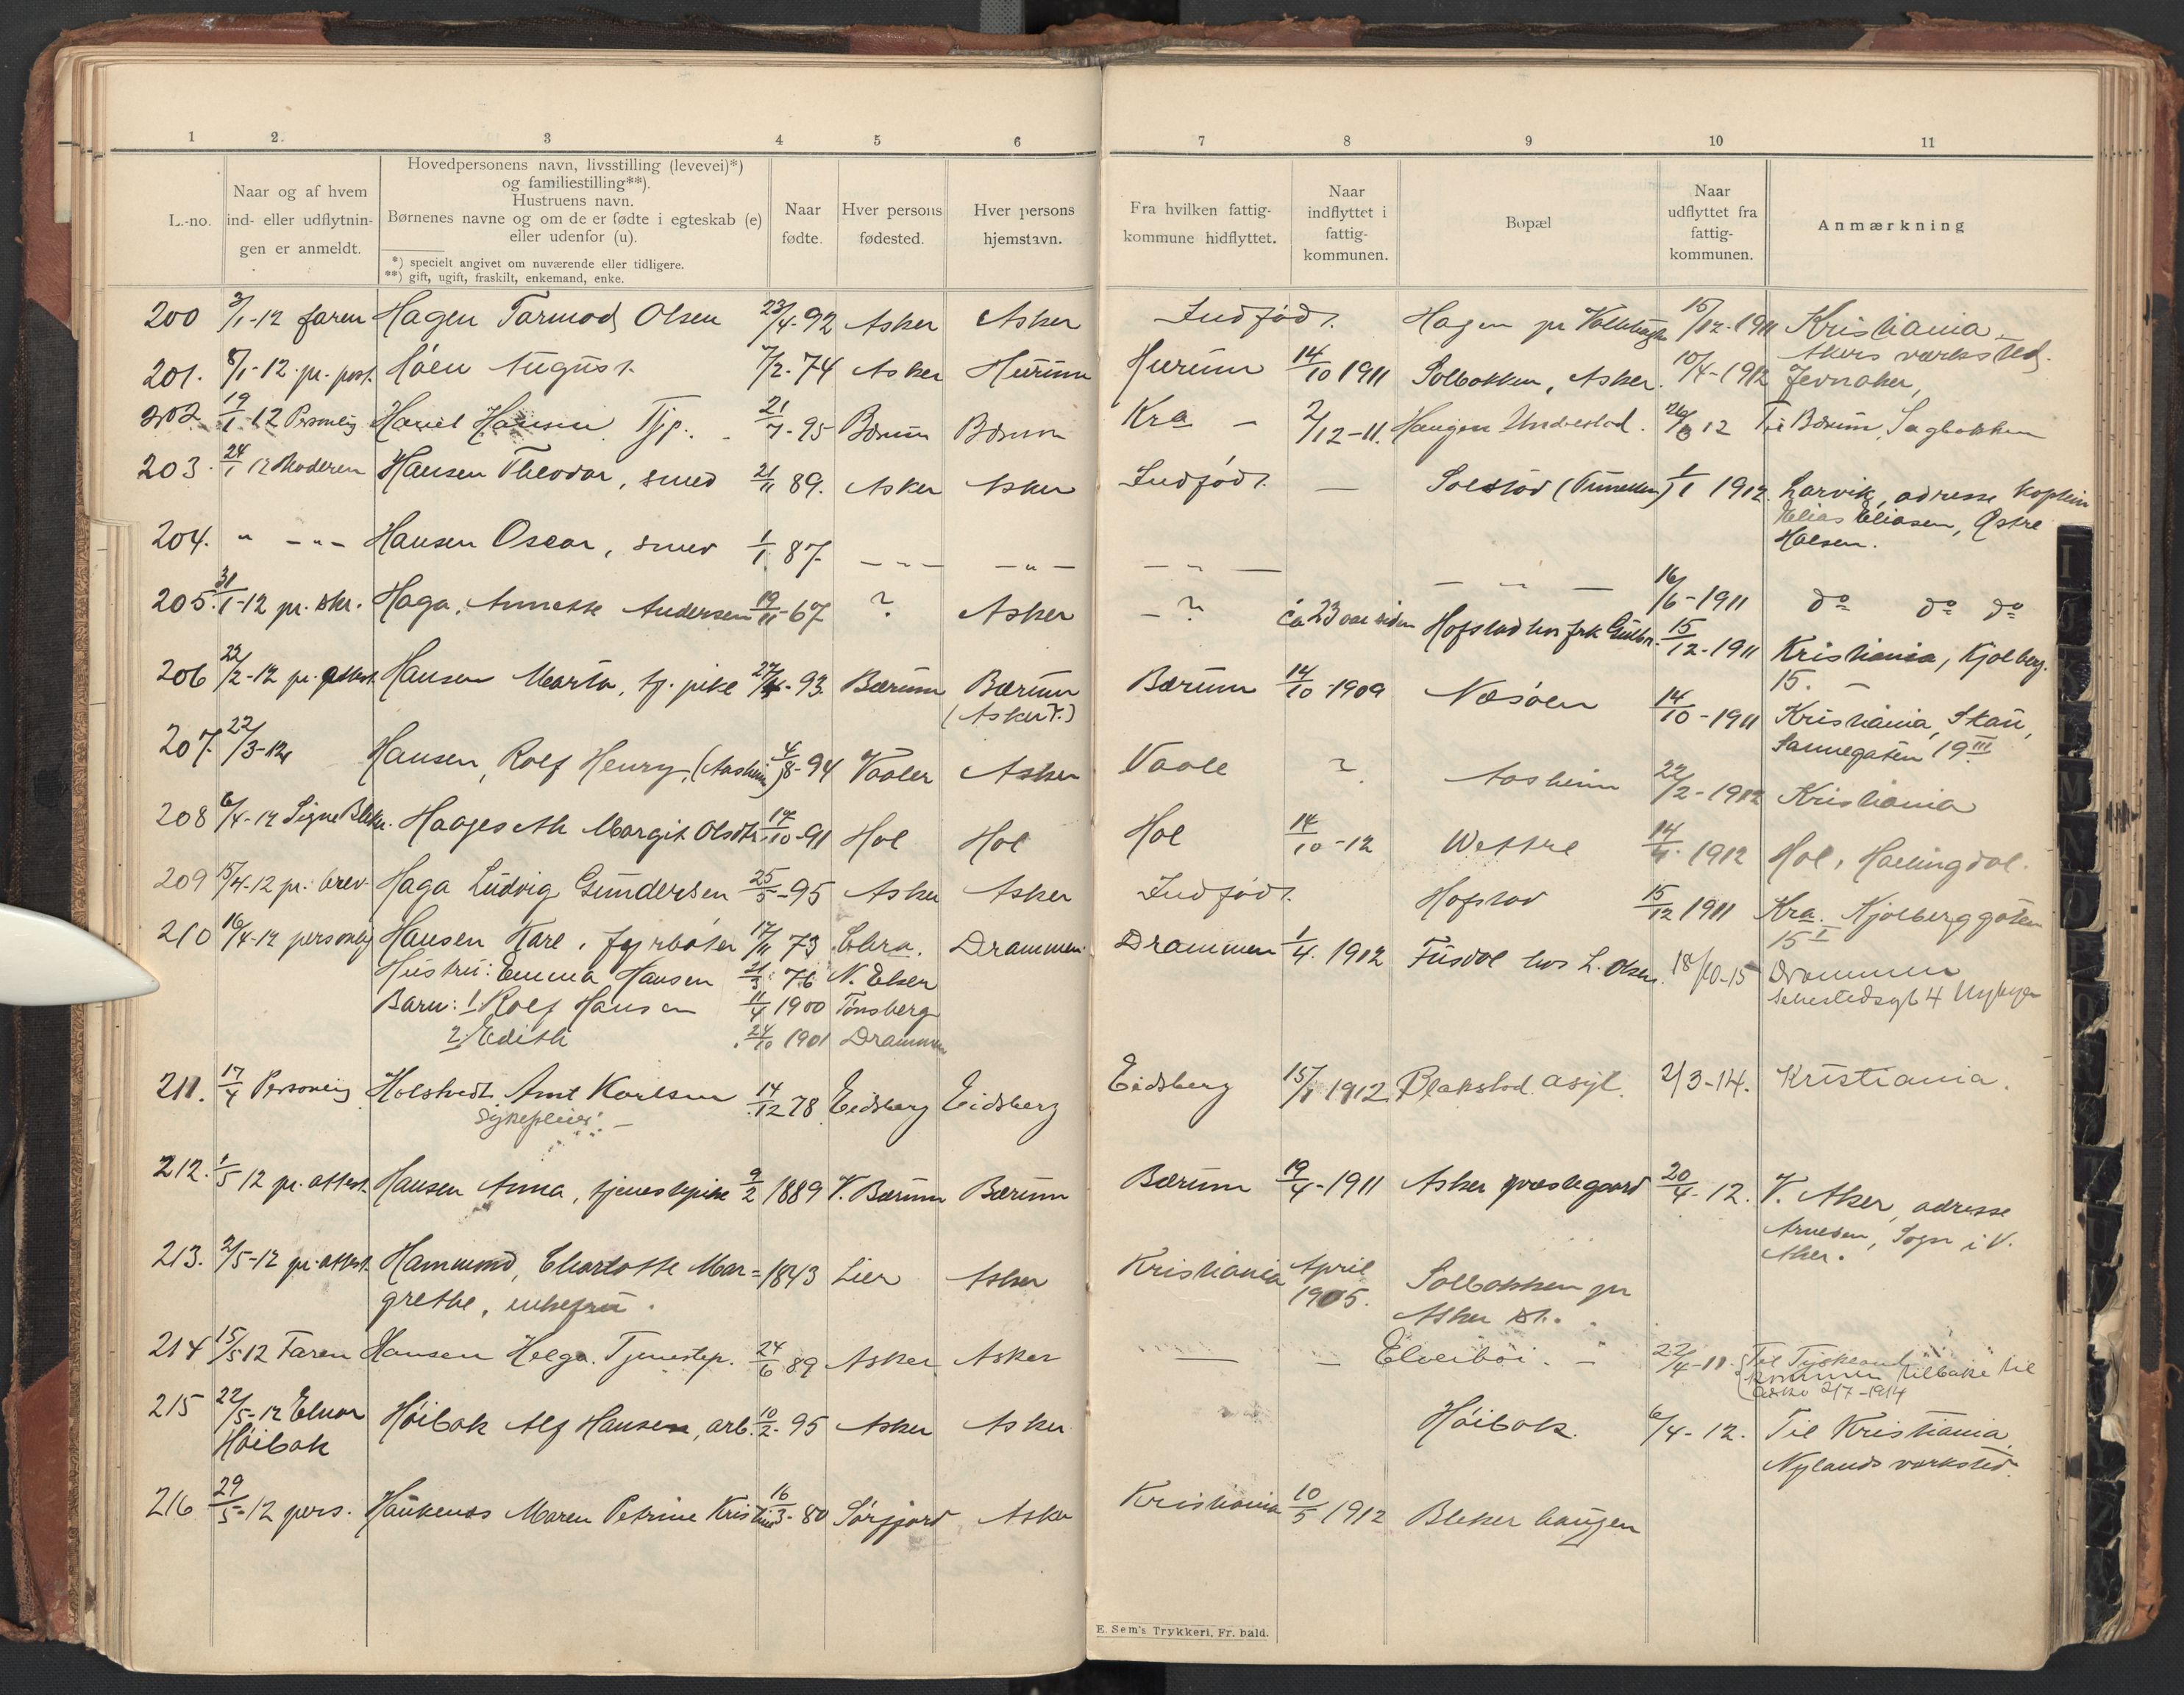 1 2. 3 4 5 6 7 8 9 10 11
L.-no.
Naar og af hvem
ind- eller udflytnin-
gen er anmeldt.
Hovedpersonens navn, livsstilling (levevei)*)
og familiestilling**).
Hustruens navn.
Børnenes navne og om de er fødte i egteskab (e)
eller udenfor (u).
*) specielt angivet om nuværende eller tidligere.
**) gift, ugift, fraskilt, enkemand, enke.
Naar
fødte.
Hver persons
fødested.
Hver persons
hjemstavn.
Fra hvilken fattig-
kommune hidflyttet.
Naar
indflyttet i
fattig-
kommunen.
Bopæl
Naar
udflyttet fra
fattig-
kommunen.
Anmærkning
200 3/1-12 faren Hagen Tormod Olsen 23/4-92 Asker Asker Indfødt. Hagen pr 15/12-1911 Kristiania
Akers værksted.
201. 8/1-12 pr. post. Höen August 7/2-74 Asker Hurum Hurum 14/10 1911 Solbakken, Asker. 10/4-1912 Jevnaker,
202. 19/1-12 Personlig Hansen Tjp. 21/7-95 Bærum Bærum Kra - 2/12-11. Haugen 12 Til Bærum, Sagbakken
203. 24/1 12 Moderen Hansen Theodor, smed 21/11 89. Asker Asker Indfødt. — Solstad 1/1 1912. Larvik, adresse kaptein
Elias Eliasen, Østre
Halsen.
204. " - " - Hansen Oscar, smed 1/1 87 - " - - " - - " - - " - 16/6-1911 do do do
205. 31/1-12 pr. skr. Haga, Annette Andersen 19/11-67 ? Asker - ? ca 23 aar siden Hofstad hos frk 15/12-1911 Kristiania, Kjølberg.
15. -
206 22/2-12 pr. attest. Hansen Marta, tj. pike 27/4-93 Bærum Bærum Bærum 14/10-1909 Næsöen 14/10-1911 Kristiania, Skau,
(Asker?)
Sannegaten 19III
207. 22/3-12 Hansen, Rolf Henry, (Aasheim) 4/8-94 Vaaler Asker Vaale ? Aasheim 22/2-1912 Kristiania
208 6/4-12 Signe Haageseth Margit Olsdtr. 17/10-91 Hol Hol Hol 14/10-12 Wettre 14/4-1912 Hol, Hallingdal.
209 15/4-12 pr. brev. Haga Ludvig Gundersen 25/5-95 Asker Asker Indfødt. Hofstad 15/12 1911 Kra. Kjølberggaten
15 I
210 16/4-12 personlig Hansen Karl, fyrböter 17/11 73 Chra. Drammen. Drammen 1/4. 1912 Fusdal hos L. Olsen. 18/10-15 Drammen
4
Hustru: Emma Hansen 21/3 76 N. Eker
Barn: 1. Rolf Hansen 11/4 1900 Tønsberg
2. Edith 24/10 1901 Drammen
211. 17/4 Personlig Holstvedt. Karlsen 14/12 78 Eidsberg Eidsberg Eidsberg 15/1 1912 Blakstad asyl. 2/3-14. Kristiania.
Sykepleier. -
212. 1/5 12 pr. attest. Hansen Anna, tjenestepike 9/2 1889 V. Bærum Bærum Bærum 19/4-1911 Asker præstegaard 20/4-12. V. Aker, adresse
Arnesen, Sogn i V.
Aker.
213. 2/5-12 pr. attest. Hammond, Charlotte Mar= 1843 Lier Asker Kristiania April
1905. Solbakken pr
Asker st.
grethe, enkefru.
214 15/5 12 Faren Hansen Helga. Tjenestep. 24/6 89 Asker Asker — - Elvebøi. - 22/4-11. Til Tyskland
kommen tilbake til
Asker 2/7-1914
215 22/5-12 Elnar
Höibak Höibak Alf Hansen, arb. 10/2-95 Asker Asker Höibak. 6/4-12. Til Kristiania.
Nylands værksted.
216 29/5-12 pers. Haukenæs Maren Petrine Kristine 16/3-80 Sørfjord Asker Kristiania 10/5 1912 Bleker haugen
E. Sem's Trykkeri, Fr. hald.
I L M N O P Q